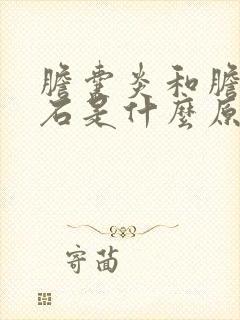 膽囊炎和膽
石是什麼原
寄苗